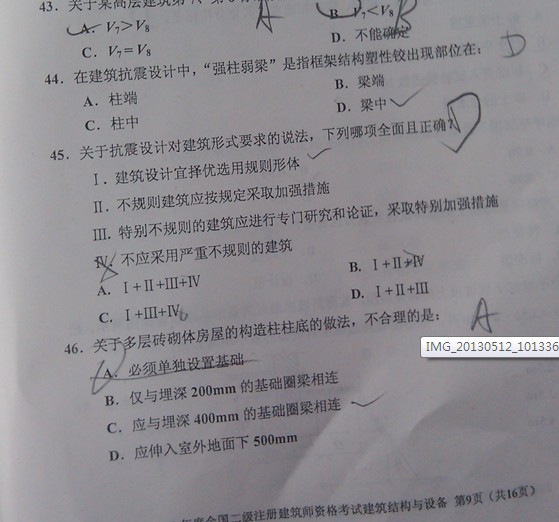 43. 关于某高层建筑第
A
A. V₇>V₈
B. V₇<V₈
B
C. V₇=V₈
D. 不能确定
44. 在建筑抗震设计中，“强柱弱梁”是指框架结构塑性铰出现部位在：
D
A. 柱端
B. 梁端
C. 柱中
D. 梁中
45. 关于抗震设计对建筑形式要求的说法，下列哪项全面且正确？
D
Ⅰ. 建筑设计宜择优选用规则形体
Ⅱ. 不规则建筑应按规定采取加强措施
Ⅲ. 特别不规则的建筑应进行专门研究和论证，采取特别加强措施
Ⅳ. 不应采用严重不规则的建筑
A. Ⅰ+Ⅱ+Ⅲ+Ⅳ
B. Ⅰ+Ⅱ+Ⅳ
C. Ⅰ+Ⅲ+Ⅳ
D. Ⅰ+Ⅱ+Ⅲ
46. 关于多层砖砌体房屋的构造柱柱底的做法，不合理的是：
A
IMG_20130512_101336
A. 必须单独设置基础
B. 仅与埋深 200mm 的基础圈梁相连
C. 应与埋深 400mm 的基础圈梁相连
D. 应伸入室外地面下 500mm
年度全国二级注册建筑师资格考试建筑结构与设备 第9页（共16页）